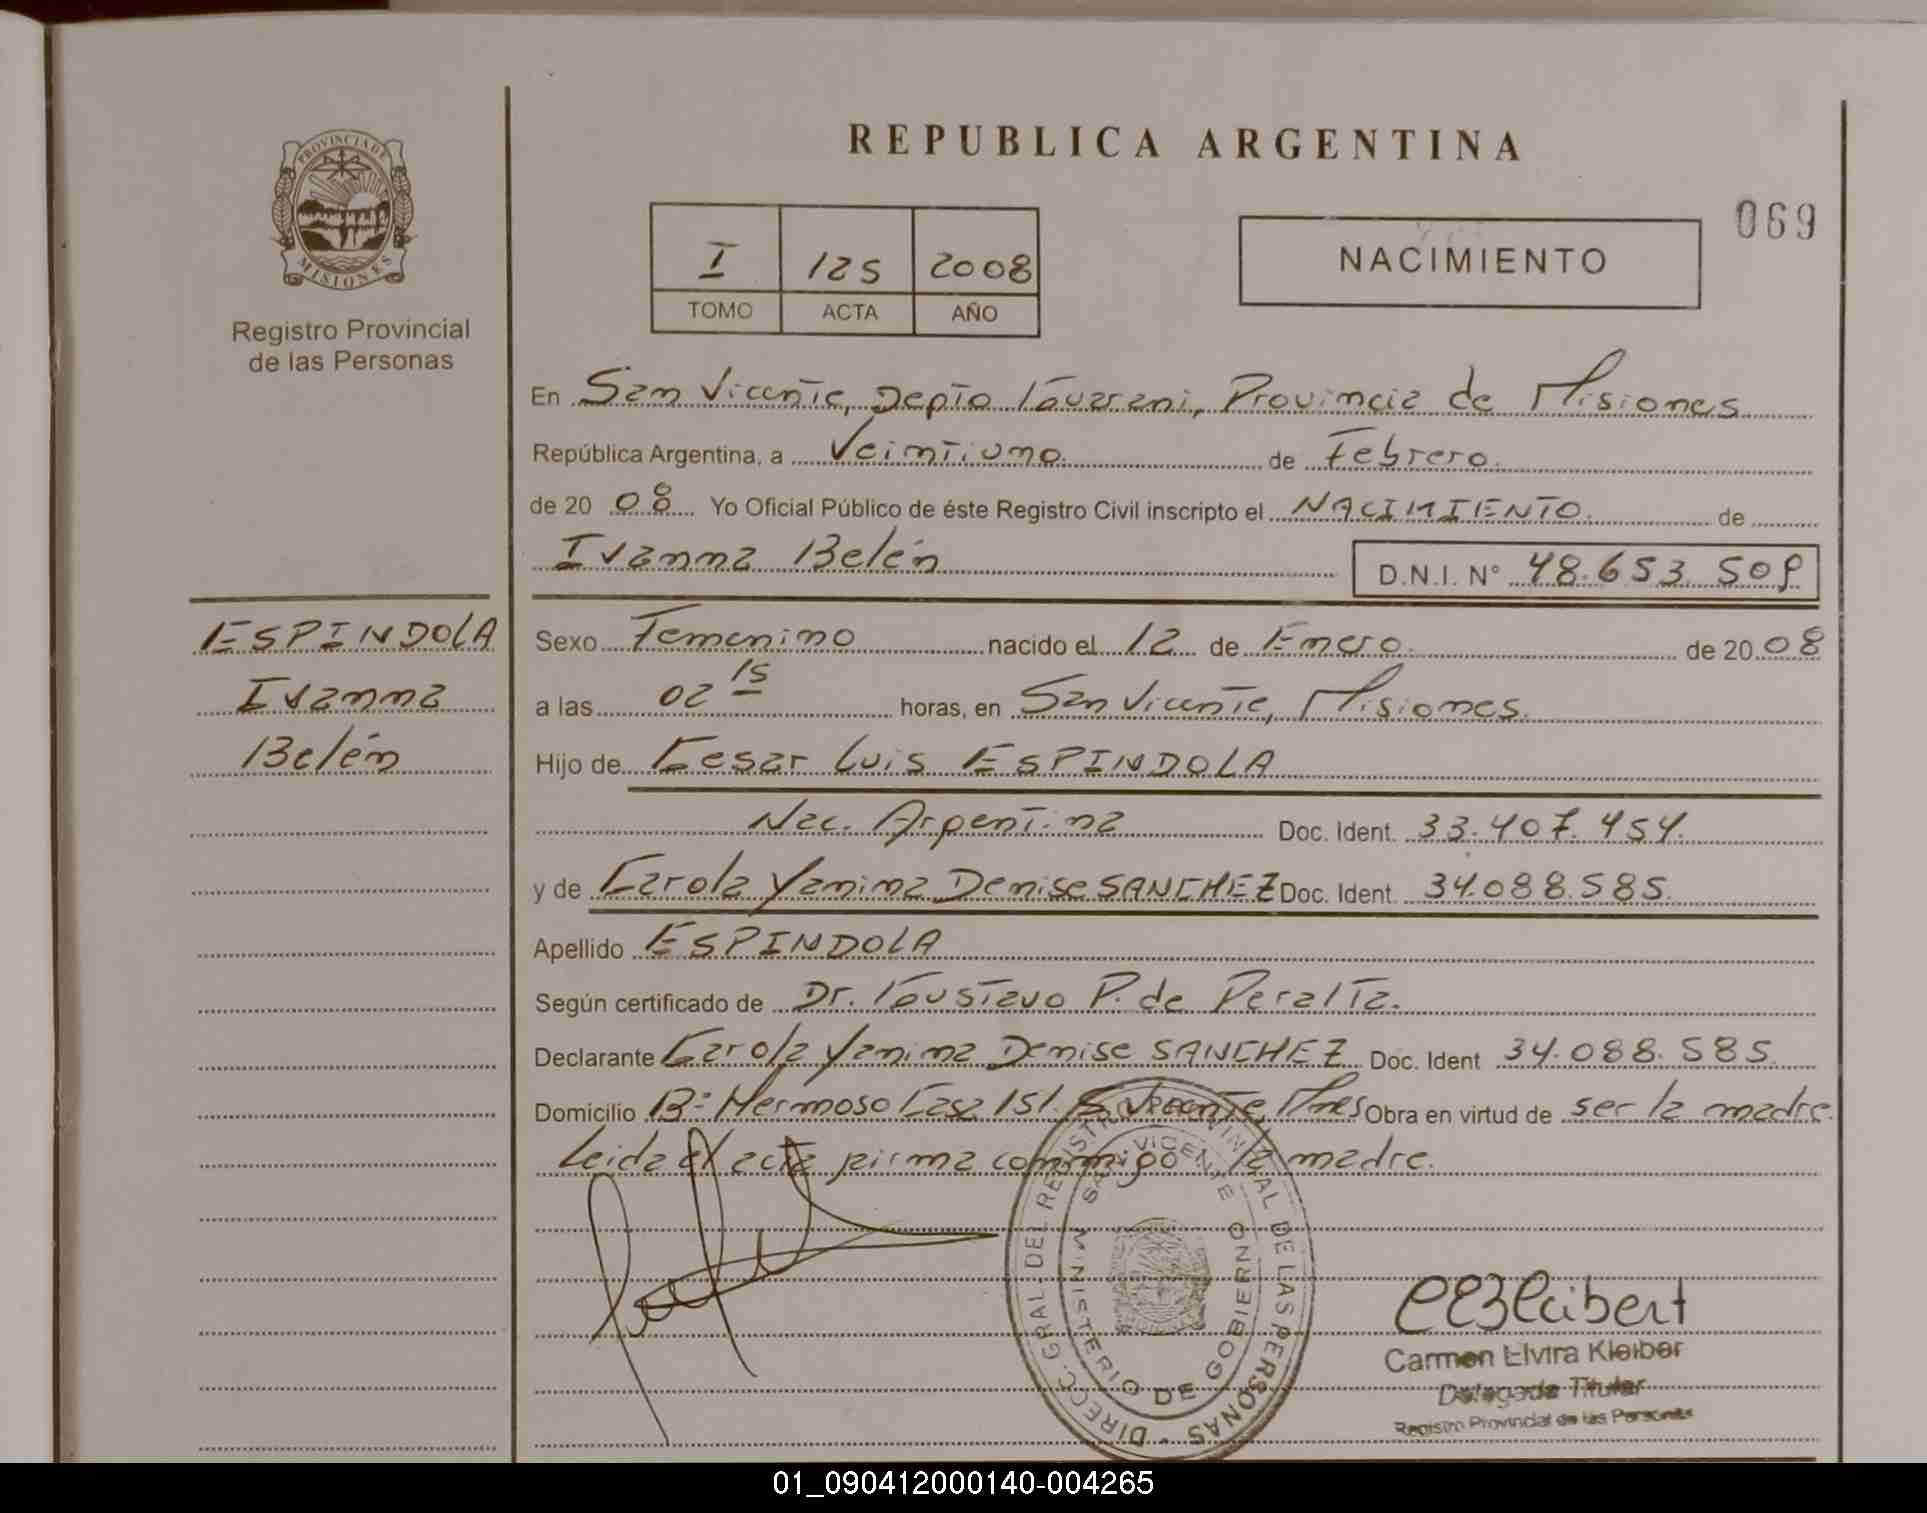 PROVINCIA DE
MISIONES
Registro Provincial
de las Personas
REPUBLICA ARGENTINA
069
I 125 2008
TOMO ACTA AÑO
NACIMIENTO
En San Vicente, Depto Guarani, Provincia de Misiones
República Argentina, a Veintiuno. de Febrero.
de 20 08 Yo Oficial Público de éste Registro Civil inscripto el NACIMIENTO. de
Ivanna Belén D.N.I. N° 48.653.509
ESPINDOLA
Ivanna
Belén
Sexo Femenino nacido el 12 de Enero. de 20 08
a las 02 15 horas, en San Vicente, Misiones.
Hijo de Cesar Luis ESPINDOLA
Nac. Argentina Doc. Ident. 33.407.454.
y de Carola Yanina Denise SANCHEZ Doc. Ident. 34.088.585.
Apellido ESPINDOLA
Según certificado de Dr. Gustavo P. de Peralta.
Declarante Carola Yanina Denise SANCHEZ Doc. Ident 34.088.585.
Domicilio B° Hermoso Casa 151. S. Vicente, Mnes Obra en virtud de ser la madre.
Leida el acta firma conmigo la madre.
DIRECC. GRAL. DEL REGISTRO PROVINCIAL DE LAS PERSONAS
SAN VICENTE
MINISTERIO DE GOBIERNO
CEKleibert
Carmen Elvira Kleiber
Delegada Titular
Registro Provincial de las Personas
01_090412000140-004265